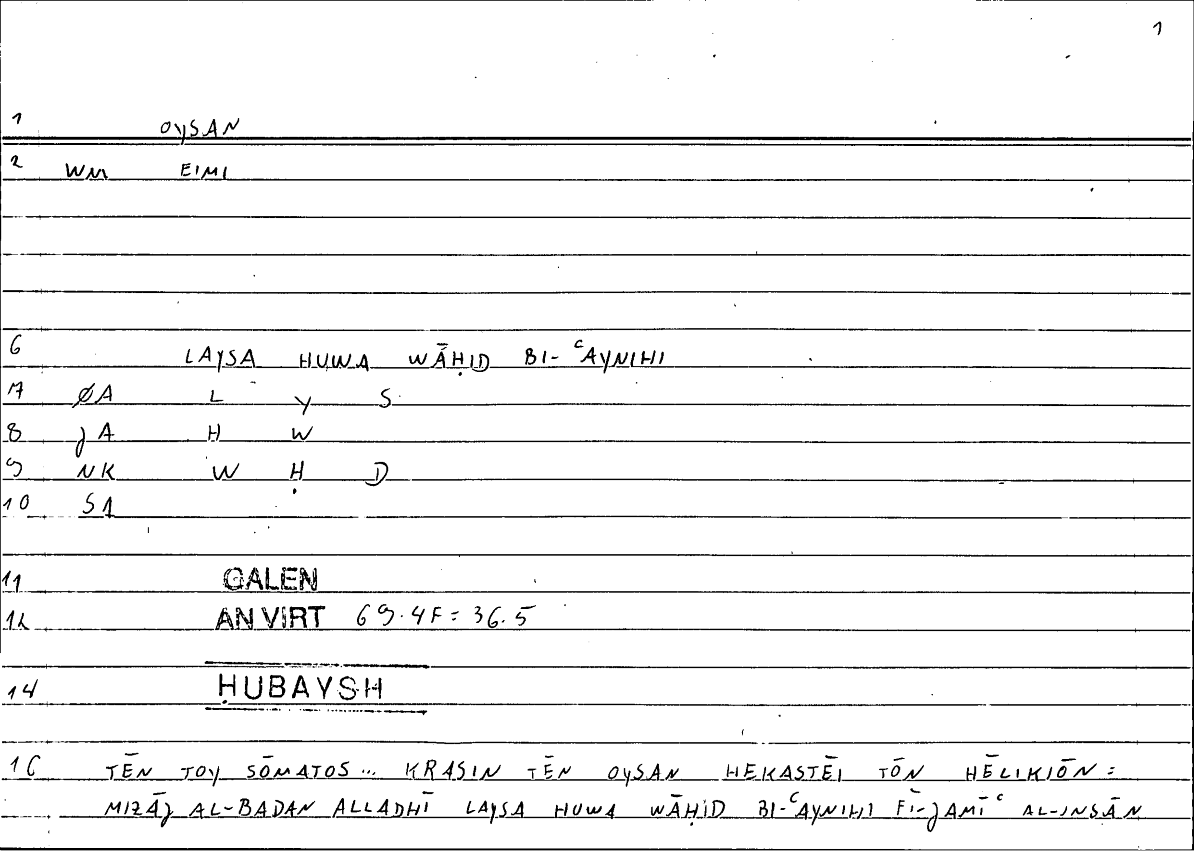 1
1 OYSAN
2 WM EIMI
6 LAYSA HUWA WĀḤID BI-ʿAYNIHI
17 ØA L Y S
8 JA H W
9 NK W Ḥ D
10 SA
11 GALEN
12 AN VIRT 69.4F = 36.5
14 ḤUBAYSH
16 TĒN TOY SŌMATOS... KRASIN TĒN OYSAN HEKASTĒI TŌN HĒLIKIŌN =
MIZĀJ AL-BADAN ALLADHĪ LAYSA HUWA WĀḤID BI-ʿAYNIHI FĪ-JAMĪʿ AL-INSĀN